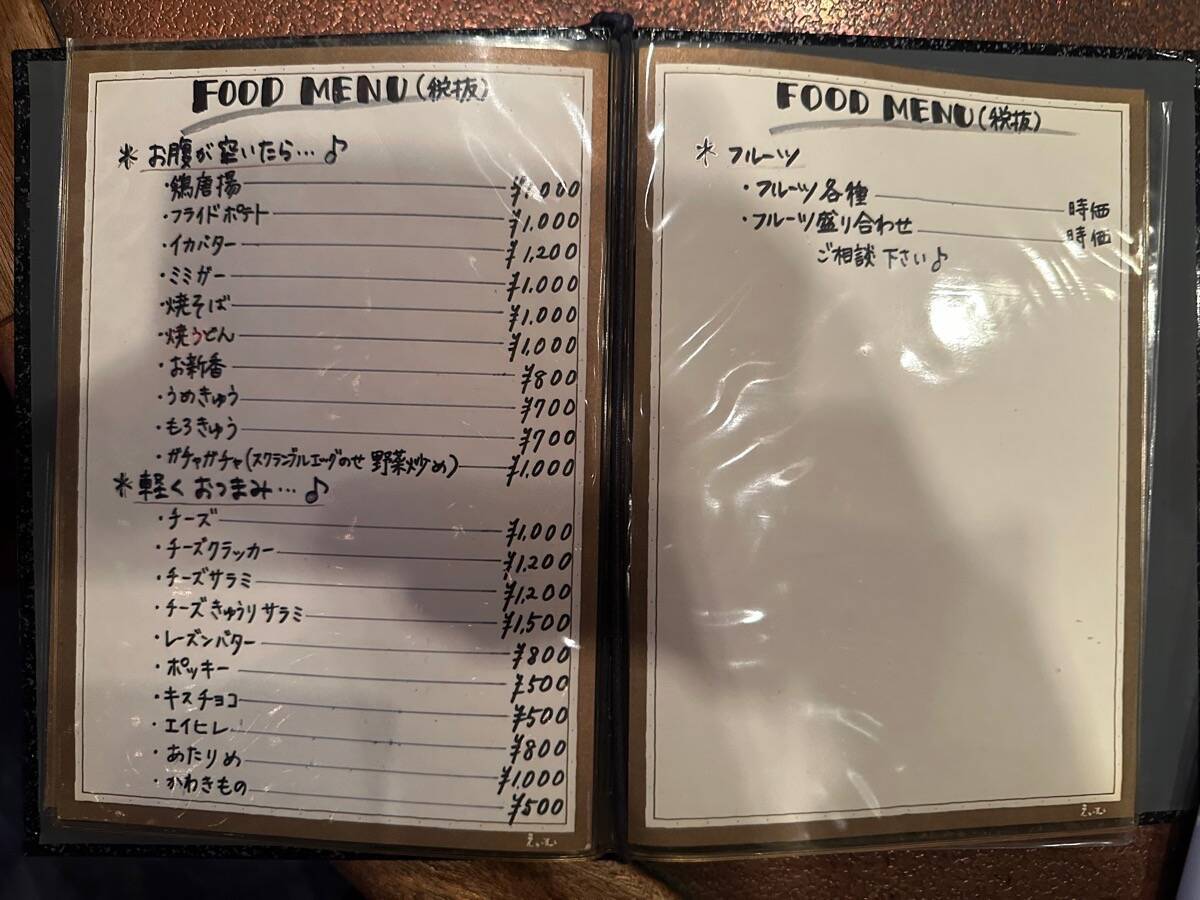 FOOD MENU(税抜)
* お腹が空いたら…♪
・鶏唐揚 ¥1,000
・フライドポテト ¥1,000
・イカバター ¥1,200
・ミミガー ¥1,000
・焼そば ¥1,000
・焼うどん ¥1,000
・お新香 ¥800
・うめきゅう ¥700
・もろきゅう ¥700
・ガチャガチャ(スクランブルエッグのせ 野菜炒め) ¥1,000
* 軽くおつまみ…♪
・チーズ ¥1,000
・チーズクラッカー ¥1,200
・チーズサラミ ¥1,200
・チーズきゅうりサラミ ¥1,500
・レーズンバター ¥800
・ポッキー ¥500
・キスチョコ ¥500
・エイヒレ ¥800
・あたりめ ¥1,000
・かわきもの ¥500
FOOD MENU(税抜)
* フルーツ
・フルーツ各種 時価
・フルーツ盛り合わせ 時価
ご相談下さい♪